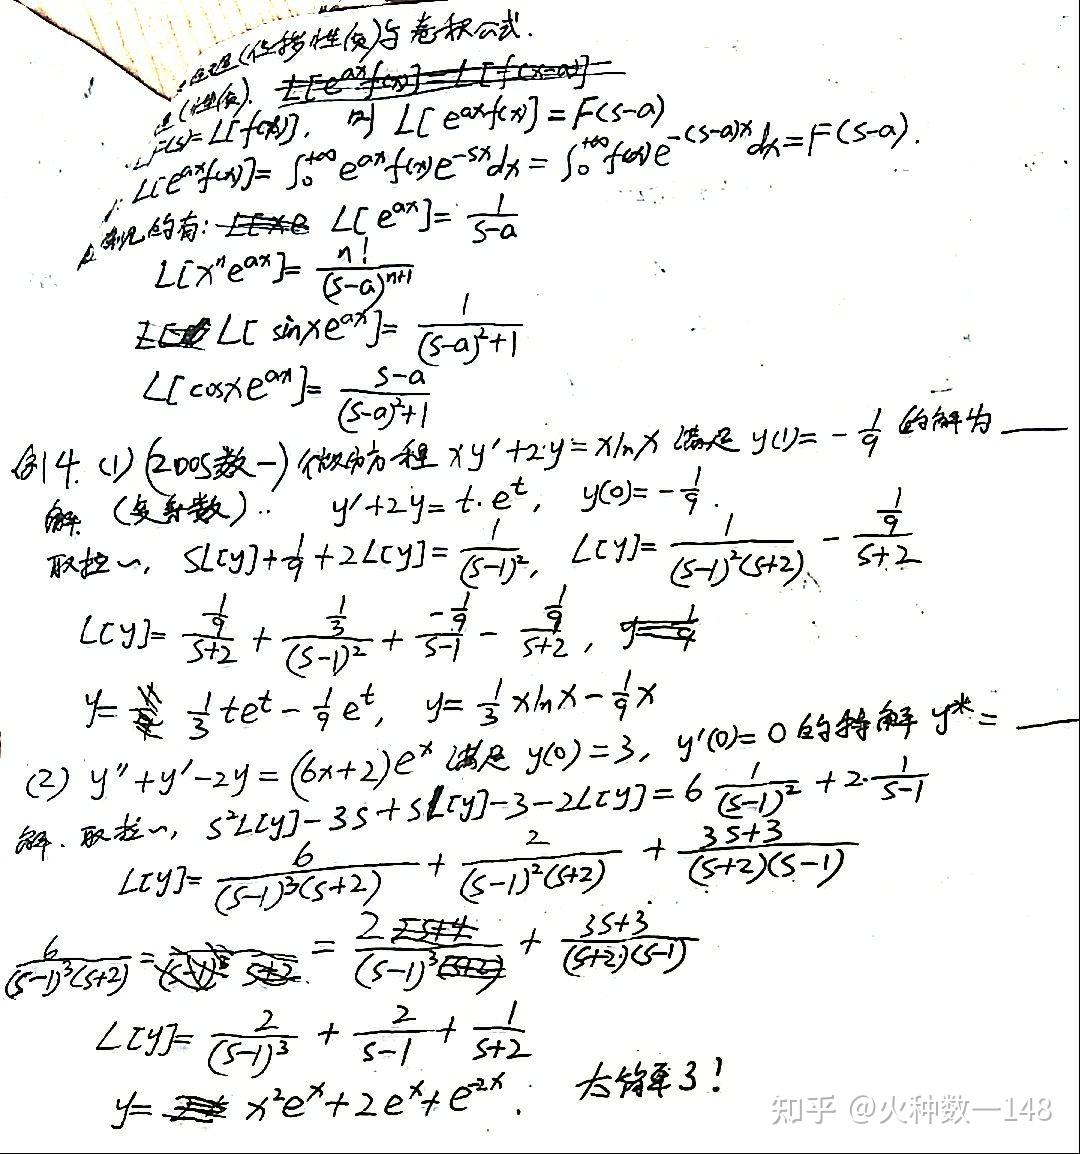 (位移性质)与卷积公式.
(性质). L[e^{ax}f(x)]=L[f(x-a)]
F(s)=L[f(x)], 则 L[e^{ax}f(x)]=F(s-a)
L[e^{ax}f(x)]=∫_0^{+∞}e^{ax}f(x)e^{-sx}dx=∫_0^{+∞}f(x)e^{-(s-a)x}dx=F(s-a).
常见的有: L[e^{ax}]=\frac{1}{s-a}
L[x^n e^{ax}]=\frac{n!}{(s-a)^{n+1}}
L[sinxe^{ax}]=\frac{1}{(s-a)^2+1}
L[cosxe^{ax}]=\frac{s-a}{(s-a)^2+1}
例4. (1)(2005数一)微分方程 xy'+2y=xlnx 满足 y(1)=-\frac{1}{9} 的解为___
解. (复系数).. y'+2y=t·e^t, y(0)=-\frac{1}{9}.
取拉~, sL[y]+\frac{1}{9}+2L[y]=\frac{1}{(s-1)^2}, L[y]=\frac{1}{(s-1)^2(s+2)}-\frac{\frac{1}{9}}{s+2}
L[y]=\frac{\frac{1}{9}}{s+2}+\frac{\frac{1}{3}}{(s-1)^2}+\frac{-\frac{1}{9}}{s-1}-\frac{\frac{1}{9}}{s+2},
y=\frac{1}{3}te^t-\frac{1}{9}e^t, y=\frac{1}{3}xlnx-\frac{1}{9}x
(2) y''+y'-2y=(6x+2)e^x 满足 y(0)=3, y'(0)=0 的特解 y*=___
解. 取拉~, s²L[y]-3s+sL[y]-3-2L[y]=6\frac{1}{(s-1)^2}+2·\frac{1}{s-1}
L[y]=\frac{6}{(s-1)^3(s+2)}+\frac{2}{(s-1)^2(s+2)}+\frac{3s+3}{(s+2)(s-1)}
\frac{6}{(s-1)^3(s+2)}= =\frac{2}{(s-1)^3}+\frac{3s+3}{(s+2)(s-1)}
L[y]=\frac{2}{(s-1)^3}+\frac{2}{s-1}+\frac{1}{s+2}
y=x²e^x+2e^x+e^{-2x}. 大简单了!
知乎 @火种数一148